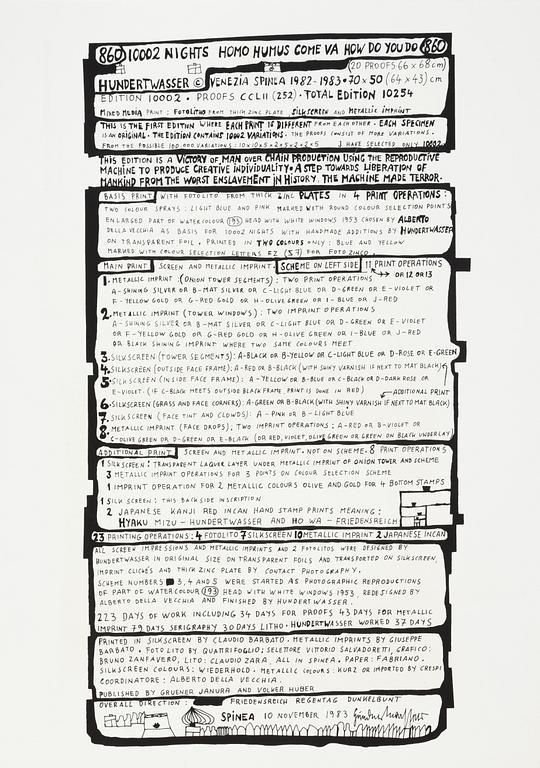 860 10002 NIGHTS HOMO HUMUS COME VA HOW DO YOU DO 860
(20 PROOFS 66 x 68 cm)
HUNDERTWASSER © VENEZIA SPINEA 1982-1983 • 70 x 50 (64 x 43) cm
EDITION 10002 • PROOFS CCLII (252) • TOTAL EDITION 10254
MIXED MEDIA PRINT: FOTOLITHO FROM THICK ZINC PLATE SILKSCREEN AND METALLIC IMPRINT
THIS IS THE FIRST EDITION WHERE EACH PRINT IS DIFFERENT FROM EACH OTHER. EACH SPECIMEN
IS AN ORIGINAL. THE EDITION CONTAINS 10002 VARIATIONS. THE PROOFS CONSIST OF MORE VARIATIONS.
FROM THE POSSIBLE 100.000 VARIATIONS: 10x10x5x2x5x2x2x5 I HAVE SELECTED ONLY 10002.
THIS EDITION IS A VICTORY OF MAN OVER CHAIN PRODUCTION USING THE REPRODUCTIVE
MACHINE TO PRODUCE CREATIVE INDIVIDUALITY. A STEP TOWARDS LIBERATION OF
MANKIND FROM THE WORST ENSLAVEMENT IN HISTORY. THE MACHINE MADE TERROR.
BASIS PRINT WITH FOTOLITO FROM THICK ZINC PLATES IN 4 PRINT OPERATIONS:
TWO COLOUR SPRAYS: LIGHT BLUE AND PINK MARKED WITH ROUND COLOUR SELECTION POINTS
ENLARGED PART OF WATERCOLOUR (193) HEAD WITH WHITE WINDOWS 1953 CHOSEN BY ALBERTO
DELLA VECCHIA AS BASIS FOR 10002 NIGHTS WITH HANDMADE ADDITIONS BY HUNDERTWASSER
ON TRANSPARENT FOIL. PRINTED IN TWO COLOURS ONLY: BLUE AND YELLOW
MARKED WITH COLOUR SELECTION LETTERS FZ (57) FOR FOTO ZINCO.
MAIN PRINT SCREEN AND METALLIC IMPRINT. SCHEME ON LEFT SIDE 11 PRINT OPERATIONS
OR 12 OR 13
1. METALLIC IMPRINT (ONION TOWER SEGMENTS): TWO PRINT OPERATIONS
A-SHINING SILVER OR B-MAT SILVER OR C-LIGHT BLUE OR D-GREEN OR E-VIOLET OR
F-YELLOW GOLD OR G-RED GOLD OR H-OLIVE GREEN OR I-BLUE OR J-RED
2. METALLIC IMPRINT (TOWER WINDOWS): TWO IMPRINT OPERATIONS
A-SHINING SILVER OR B-MAT SILVER OR C-LIGHT BLUE OR D-GREEN OR E-VIOLET
OR F-YELLOW GOLD OR G-RED GOLD OR H-OLIVE GREEN OR I-BLUE OR J-RED
OR BLACK SHINING IMPRINT WHERE TWO SAME COLOURS MEET
3. SILKSCREEN (TOWER SEGMENTS): A-BLACK OR B-YELLOW OR C-LIGHT BLUE OR D-ROSE OR E-GREEN
4. SILKSCREEN (OUTSIDE FACE FRAME): A-RED OR B-BLACK (WITH SHINY VARNISH IF NEXT TO MAT BLACK)
5. SILKSCREEN (INSIDE FACE FRAME): A-YELLOW OR B-BLUE OR C-BLACK OR D-DARK ROSE OR
E-VIOLET. (IF C-BLACK MEETS OUTSIDE BLACK FRAME PRINT IS DONE IN RED) ADDITIONAL PRINT
6. SILKSCREEN (GRASS AND FACE CORNERS): A-GREEN OR B-BLACK (WITH SHINY VARNISH IF NEXT TO MAT BLACK)
7. SILKSCREEN (FACE TINT AND CLOWDS): A-PINK OR B-LIGHT BLUE
8. METALLIC IMPRINT (FACE DROPS), TWO IMPRINT OPERATIONS: A-RED OR B-VIOLET OR
C-OLIVE GREEN OR D-GREEN OR E-BLACK (OR RED, VIOLET, OLIVE GREEN OR GREEN ON BLACK UNDERLAY)
ADDITIONAL PRINT SCREEN AND METALLIC IMPRINT. NOT ON SCHEME. 8 PRINT OPERATIONS
1 SILKSCREEN: TRANSPARENT LAQUER LAYER UNDER METALLIC IMPRINT OF ONION TOWER AND SCHEME
3 METALLIC IMPRINT OPERATIONS FOR 3 POINTS ON COLOUR SELECTION SCHEME
1 IMPRINT OPERATION FOR 2 METALLIC COLOURS OLIVE AND GOLD FOR 4 BOTTOM STAMPS
1 SILK SCREEN: THIS BACKSIDE INSCRIPTION
2 JAPANESE KANJI RED INCAN HAND STAMP PRINTS MEANING:
HYAKU MIZU - HUNDERTWASSER AND HO WA - FRIEDENSREICH
23 PRINTING OPERATIONS: 4 FOTOLITO 7 SILKSCREEN 10 METALLIC IMPRINT 2 JAPANESE INCAN
ALL SCREEN IMPRESSIONS AND METALLIC IMPRINTS AND 2 FOTOLITOS WERE DESIGNED BY
HUNDERTWASSER IN ORIGINAL SIZE ON TRANSPARENT FOILS AND TRANSPORTED ON SILKSCREEN,
IMPRINT CLICHÉS AND THICK ZINC PLATE BY CONTACT PHOTOGRAPHY.
SCHEME NUMBERS 3, 4 AND 5 WERE STARTED AS PHOTOGRAPHIC REPRODUCTIONS
OF PART OF WATERCOLOUR (193) HEAD WITH WHITE WINDOWS 1953, REDESIGNED BY
ALBERTO DELLA VECCHIA AND FINISHED BY HUNDERTWASSER.
223 DAYS OF WORK INCLUDING 34 DAYS FOR PROOFS 43 DAYS FOR METALLIC
IMPRINT 79 DAYS SERIGRAPHY 30 DAYS LITHO. HUNDERTWASSER WORKED 37 DAYS
PRINTED IN SILKSCREEN BY CLAUDIO BARBATO. METALLIC IMPRINTS BY GIUSEPPE
BARBATO. FOTOLITO BY QUATTRIFOGLIO; SELETTORE VITTORIO SALVADORETTI, GRAFICO:
BRUNO ZANFAVERO, LITO: CLAUDIO ZARA, ALL IN SPINEA. PAPER: FABRIANO.
SILKSCREEN COLOURS: WIEDERHOLD. METALLIC COLOURS: KURZ OR IMPORTED BY CRESPI
COORDINATORE: ALBERTO DELLA VECCHIA.
PUBLISHED BY GRUENER JANURA AND VOLKER HUBER
OVERALL DIRECTION: FRIEDENSREICH REGENTAG DUNKELBUNT
SPINEA 10 NOVEMBER 1983 Hundertwasser